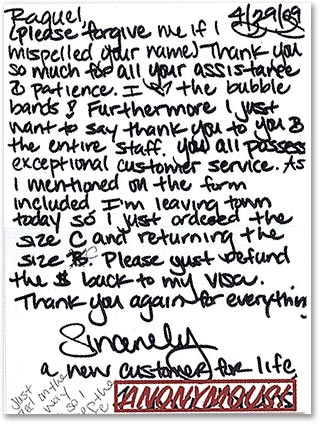 Raquel, 4/29/09
(please forgive me if I
mispelled your name) Thank you
so much for all your assistance
& patience. I ♡ the bubble
bands! Furthermore I just
want to say thank you to you &
the entire staff. You all possess
exceptional customer service. As
I mentioned on the form
included I'm leaving town
today so I just ordered the
size C and returning the
size B. Please just refund
the $ back to my visa.
Thank you again for everything
Sincerely
a new customer for life
ANONYMOUS
Just
on the
way
so I